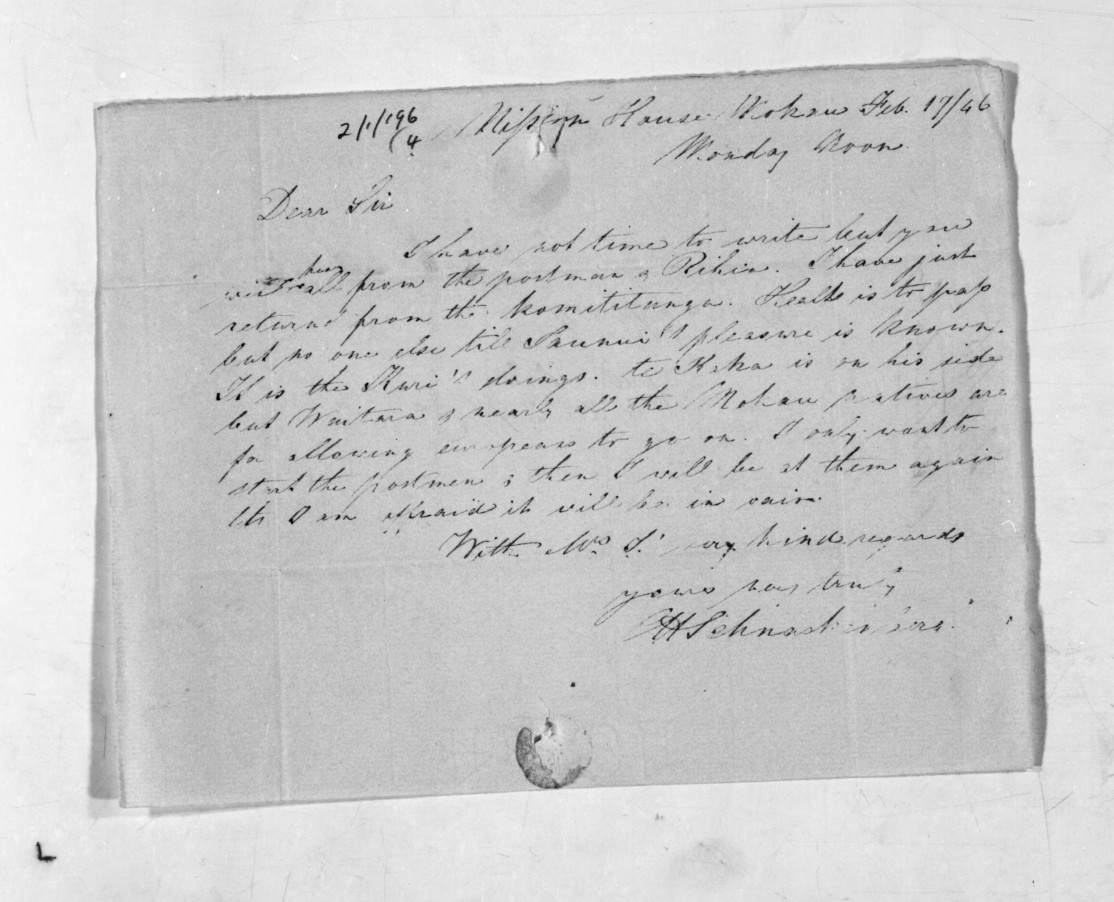 2/1/196
/4
Mission House Mokau Feb. 17/46
Monday Noon
Dear Sir
I have not time to write but you
will hear all from the postman & Rihia. I have just
returned from the komititunga. Heall is to pass
but no one else till Taunui's pleasure is known.
It is the Kuri's doings. te Kaka is on his side
but Waitara & nearly all the Mokau natives are
for allowing europeans to go on. I only want to
start the postmen & then I will be at them again
tho I am afraid it will be in vain.
With Mrs S.' very kind regards
yours very truly
HSchnackenberg
L